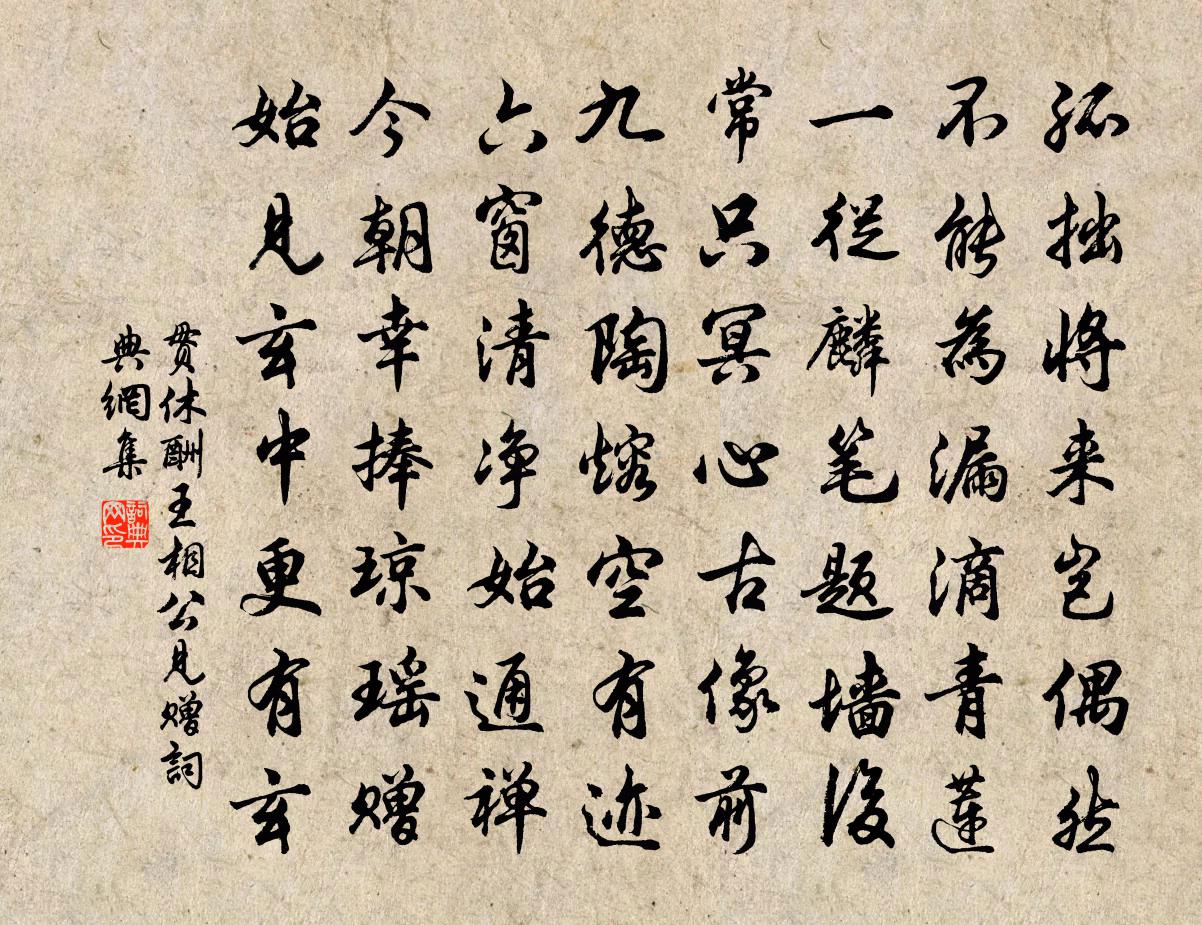 孤拙將来岂偶然
不能為漏滴青蓮
一從麟笔题墙後
常只冥心古像前
九德陶熔空有迹
六窗清净始通禅
今朝幸捧琼瑶赠
始見玄中更有玄
贯休酬王相公見赠詞
典網集
詞典网印